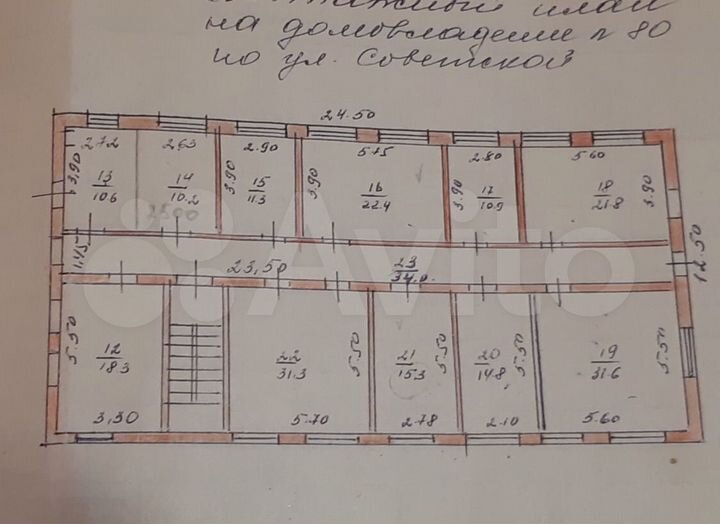 этажный план
на домовладение N 80
по ул. Советской
24.50
2.72
2.63
2.90
5.75
2.80
5.60
3,90
13
10.6
14
10.2
2500
3.90
15
11.3
3.90
16
22.4
3.90
17
10.9
18
21.8
3.90
1,45
23,50
23
34,0
12.50
Avito
5.50
12
18.3
22
31.3
5.50
21
15.3
5.50
20
14.8
5.50
19
31.6
5.50
3,30
5.70
2.78
2.10
5.60